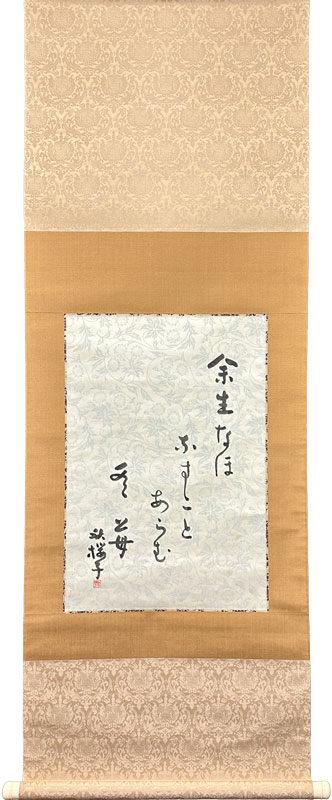 余生なほ
なすこと
あらむ
冬苺
秋桜子